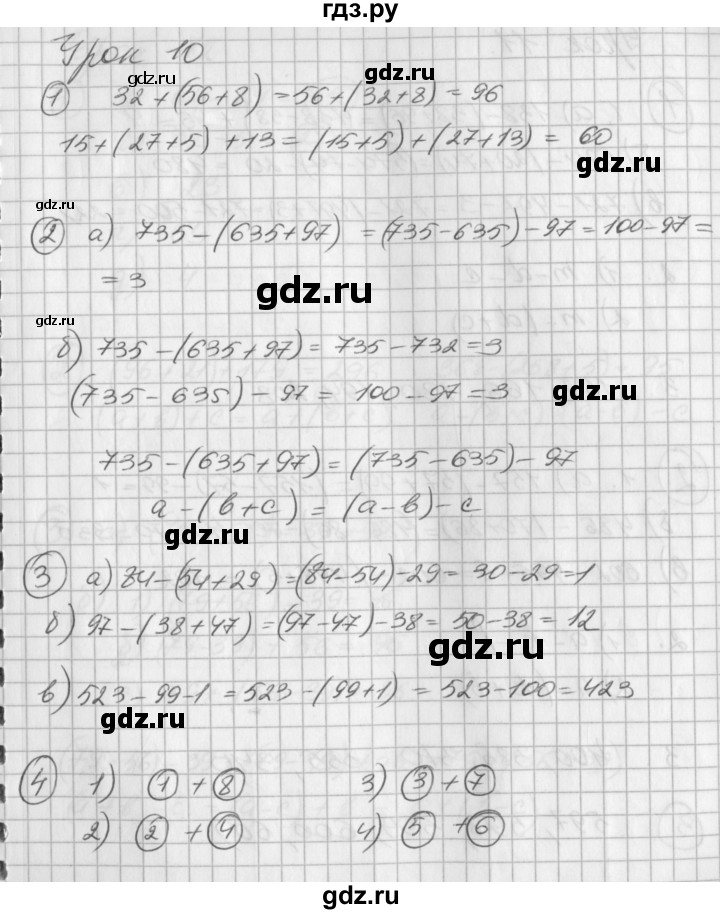 гдз.ру
Урок 10
gdz.ru
gdz.ru
① 32+(56+8)=56+(32+8)=96
15+(27+5)+13=(15+5)+(27+13)=60
gdz.ru
gdz.ru
② а) 735-(635+97)=(735-635)-97=100-97=
=3
gdz.ru
gdz.ru
б) 735-(635+97)=735-732=3
(735-635)-97=100-97=3
gdz.ru
735-(635+97)=(735-635)-97
a-(b+c)=(a-b)-c
gdz.ru
③ а) 84-(54+29)=(84-54)-29=30-29=1
б) 97-(38+47)=(97-47)-38=50-38=12
gdz.ru
в) 523-99-1=523-(99+1)=523-100=423
gdz.ru
④ 1) ①+⑧ 3) ③+⑦
2) ②+④ 4) ⑤+⑥
gdz.ru
gdz.ru
гдз.ру